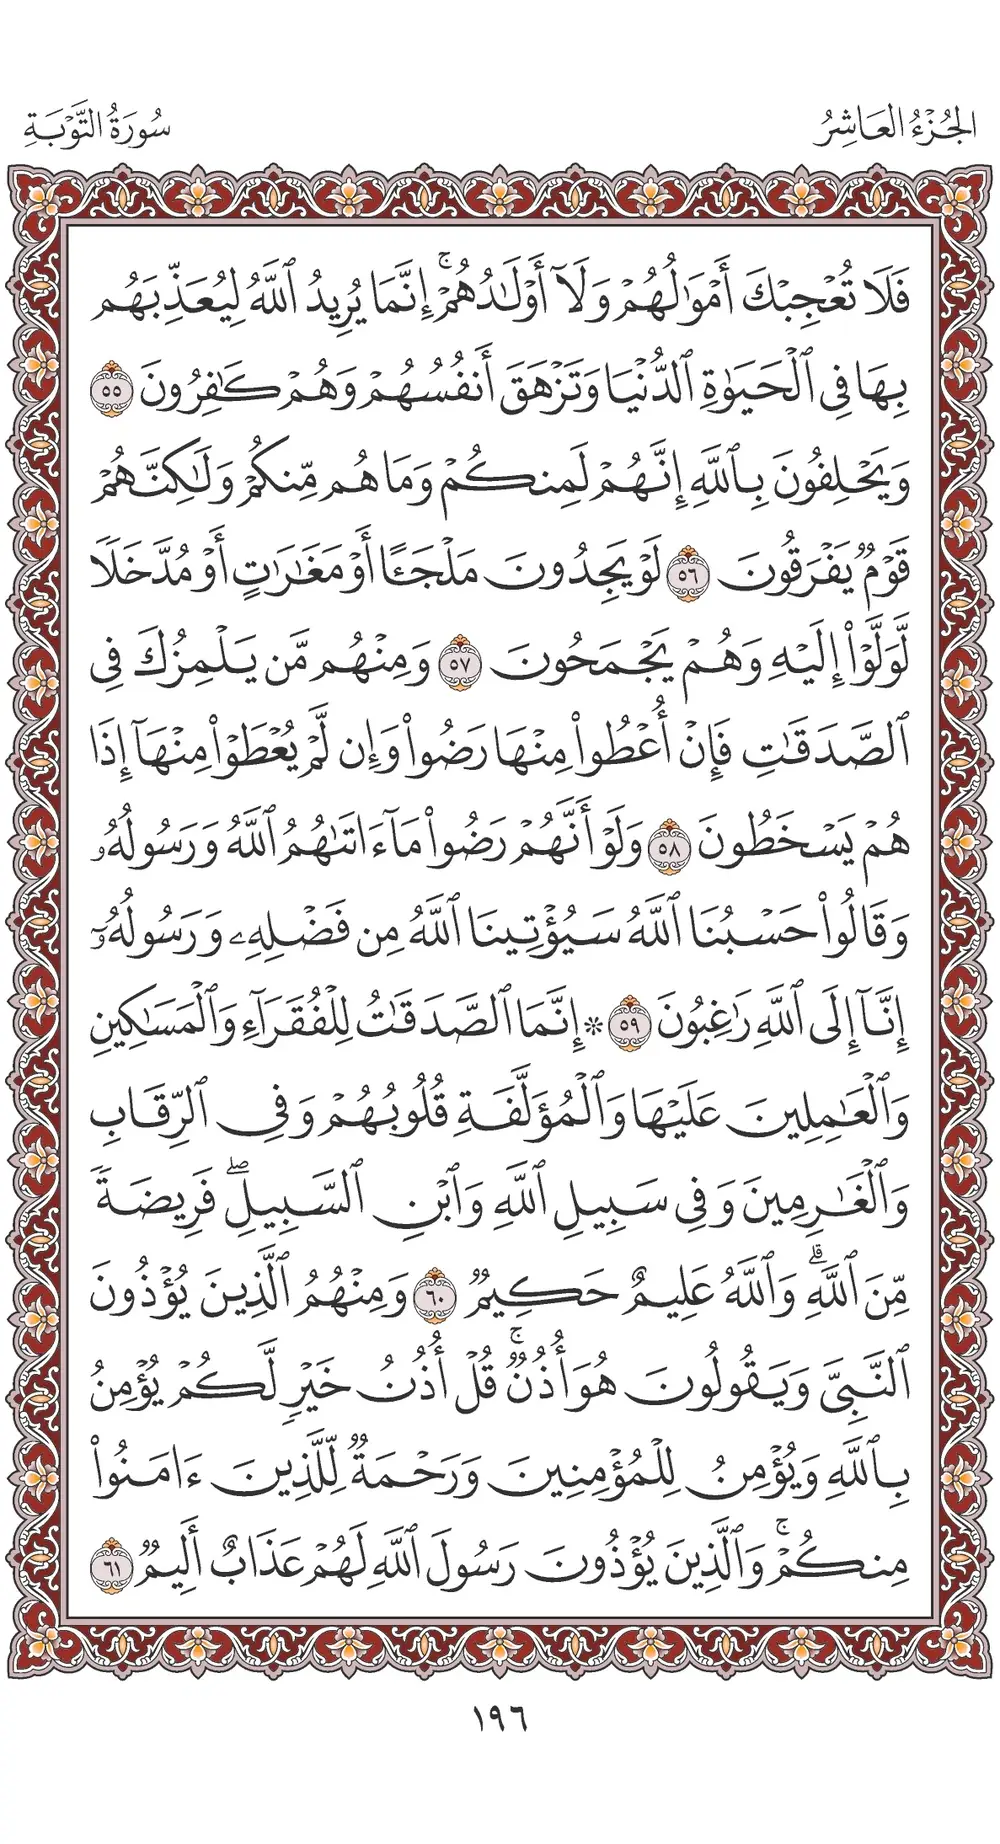 الجُزْءُ العَاشِرُ
سُورَةُ التَّوْبَةِ
فَلَا تُعْجِبْكَ أَمْوَٰلُهُمْ وَلَآ أَوْلَـٰدُهُمْ ۚ إِنَّمَا يُرِيدُ ٱللَّهُ لِيُعَذِّبَهُم
بِهَا فِى ٱلْحَيَوٰةِ ٱلدُّنْيَا وَتَزْهَقَ أَنفُسُهُمْ وَهُمْ كَـٰفِرُونَ ٥٥
وَيَحْلِفُونَ بِٱللَّهِ إِنَّهُمْ لَمِنكُمْ وَمَا هُم مِّنكُمْ وَلَـٰكِنَّهُمْ
قَوْمٌ يَفْرَقُونَ ٥٦ لَوْ يَجِدُونَ مَلْجَـًٔا أَوْ مَغَـٰرَٰتٍ أَوْ مُدَّخَلًا
لَّوَلَّوْا۟ إِلَيْهِ وَهُمْ يَجْمَحُونَ ٥٧ وَمِنْهُم مَّن يَلْمِزُكَ فِى
ٱلصَّدَقَـٰتِ فَإِنْ أُعْطُوا۟ مِنْهَا رَضُوا۟ وَإِن لَّمْ يُعْطَوْا۟ مِنْهَآ إِذَا
هُمْ يَسْخَطُونَ ٥٨ وَلَوْ أَنَّهُمْ رَضُوا۟ مَآ ءَاتَىٰهُمُ ٱللَّهُ وَرَسُولُهُۥ
وَقَالُوا۟ حَسْبُنَا ٱللَّهُ سَيُؤْتِينَا ٱللَّهُ مِن فَضْلِهِۦ وَرَسُولُهُۥٓ
إِنَّآ إِلَى ٱللَّهِ رَٰغِبُونَ ٥٩ ۞ إِنَّمَا ٱلصَّدَقَـٰتُ لِلْفُقَرَآءِ وَٱلْمَسَـٰكِينِ
وَٱلْعَـٰمِلِينَ عَلَيْهَا وَٱلْمُؤَلَّفَةِ قُلُوبُهُمْ وَفِى ٱلرِّقَابِ
وَٱلْغَـٰرِمِينَ وَفِى سَبِيلِ ٱللَّهِ وَٱبْنِ ٱلسَّبِيلِ ۖ فَرِيضَةً
مِّنَ ٱللَّهِ ۗ وَٱللَّهُ عَلِيمٌ حَكِيمٌ ٦٠ وَمِنْهُمُ ٱلَّذِينَ يُؤْذُونَ
ٱلنَّبِىَّ وَيَقُولُونَ هُوَ أُذُنٌ ۚ قُلْ أُذُنُ خَيْرٍ لَّكُمْ يُؤْمِنُ
بِٱللَّهِ وَيُؤْمِنُ لِلْمُؤْمِنِينَ وَرَحْمَةٌ لِّلَّذِينَ ءَامَنُوا۟
مِنكُمْ ۚ وَٱلَّذِينَ يُؤْذُونَ رَسُولَ ٱللَّهِ لَهُمْ عَذَابٌ أَلِيمٌ ٦١
١٩٦